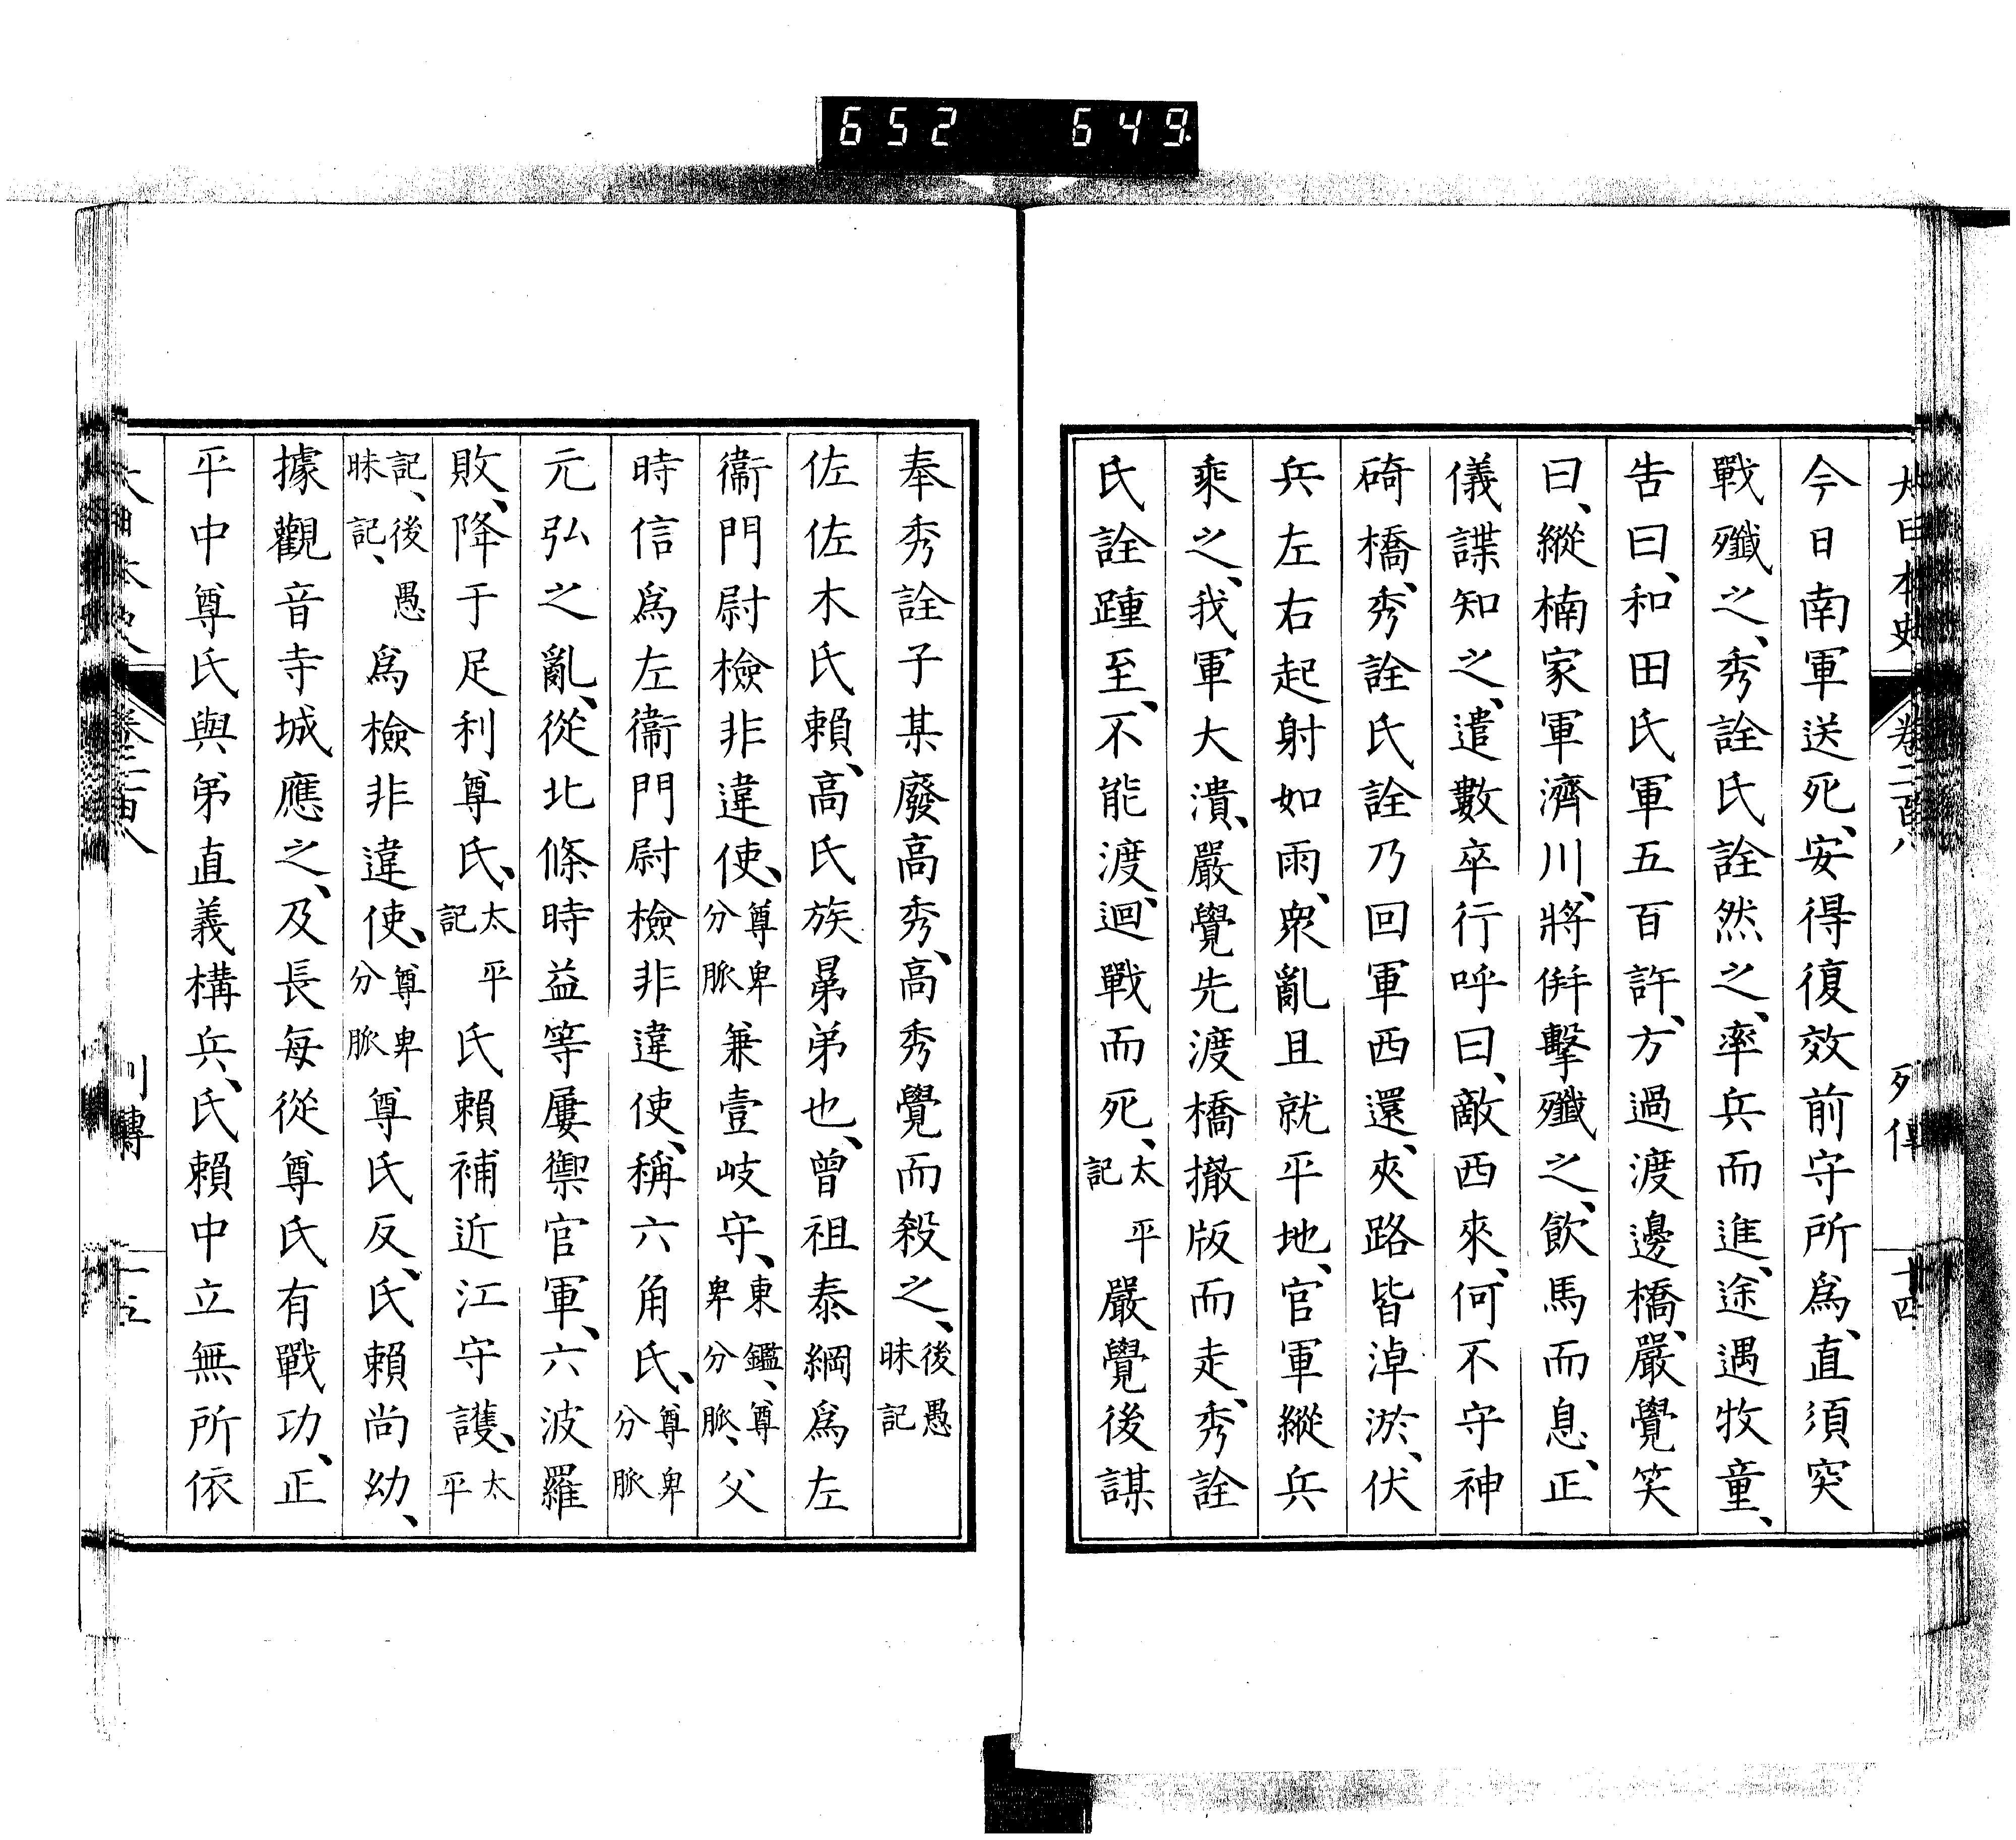 652 649
大日本史 卷二百八 列傳 十四
今日南軍送死、安得復效前守所爲、直須突
戰殲之、秀詮氏詮然之、率兵而進、途遇牧童、
告曰、和田氏軍五百許、方過渡邊橋、嚴覺笑
曰、縱楠家軍濟川、將倂擊殲之、飮馬而息、正
儀諜知之、遣數卒行呼曰、敵西來、何不守神
碕橋、秀詮氏詮乃回軍西還、夾路皆淖淤、伏
兵左右起射如雨、衆亂且就平地、官軍縱兵
乘之、我軍大潰、嚴覺先渡橋撤版而走、秀詮
氏詮踵至、不能渡、迴戰而死、太平記 嚴覺後謀
奉秀詮子某廢高秀、高秀覺而殺之、後愚昧記
佐佐木氏賴、高氏族曑弟也、曾祖泰綱爲左
衞門尉檢非違使、尊卑分脈 兼壹岐守、東鑑、尊卑分脈、父
時信爲左衞門尉檢非違使、稱六角氏、尊卑分脈
元弘之亂、從北條時益等屢禦官軍、六波羅
敗、降于足利尊氏、太平記 氏賴補近江守護、太平
記、後愚昧記、爲檢非違使、尊卑分脈 尊氏反、氏賴尚幼、
據觀音寺城應之、及長每從尊氏有戰功、正
平中尊氏與弟直義構兵、氏賴中立無所依
大日本史 卷二百八 列傳 十五